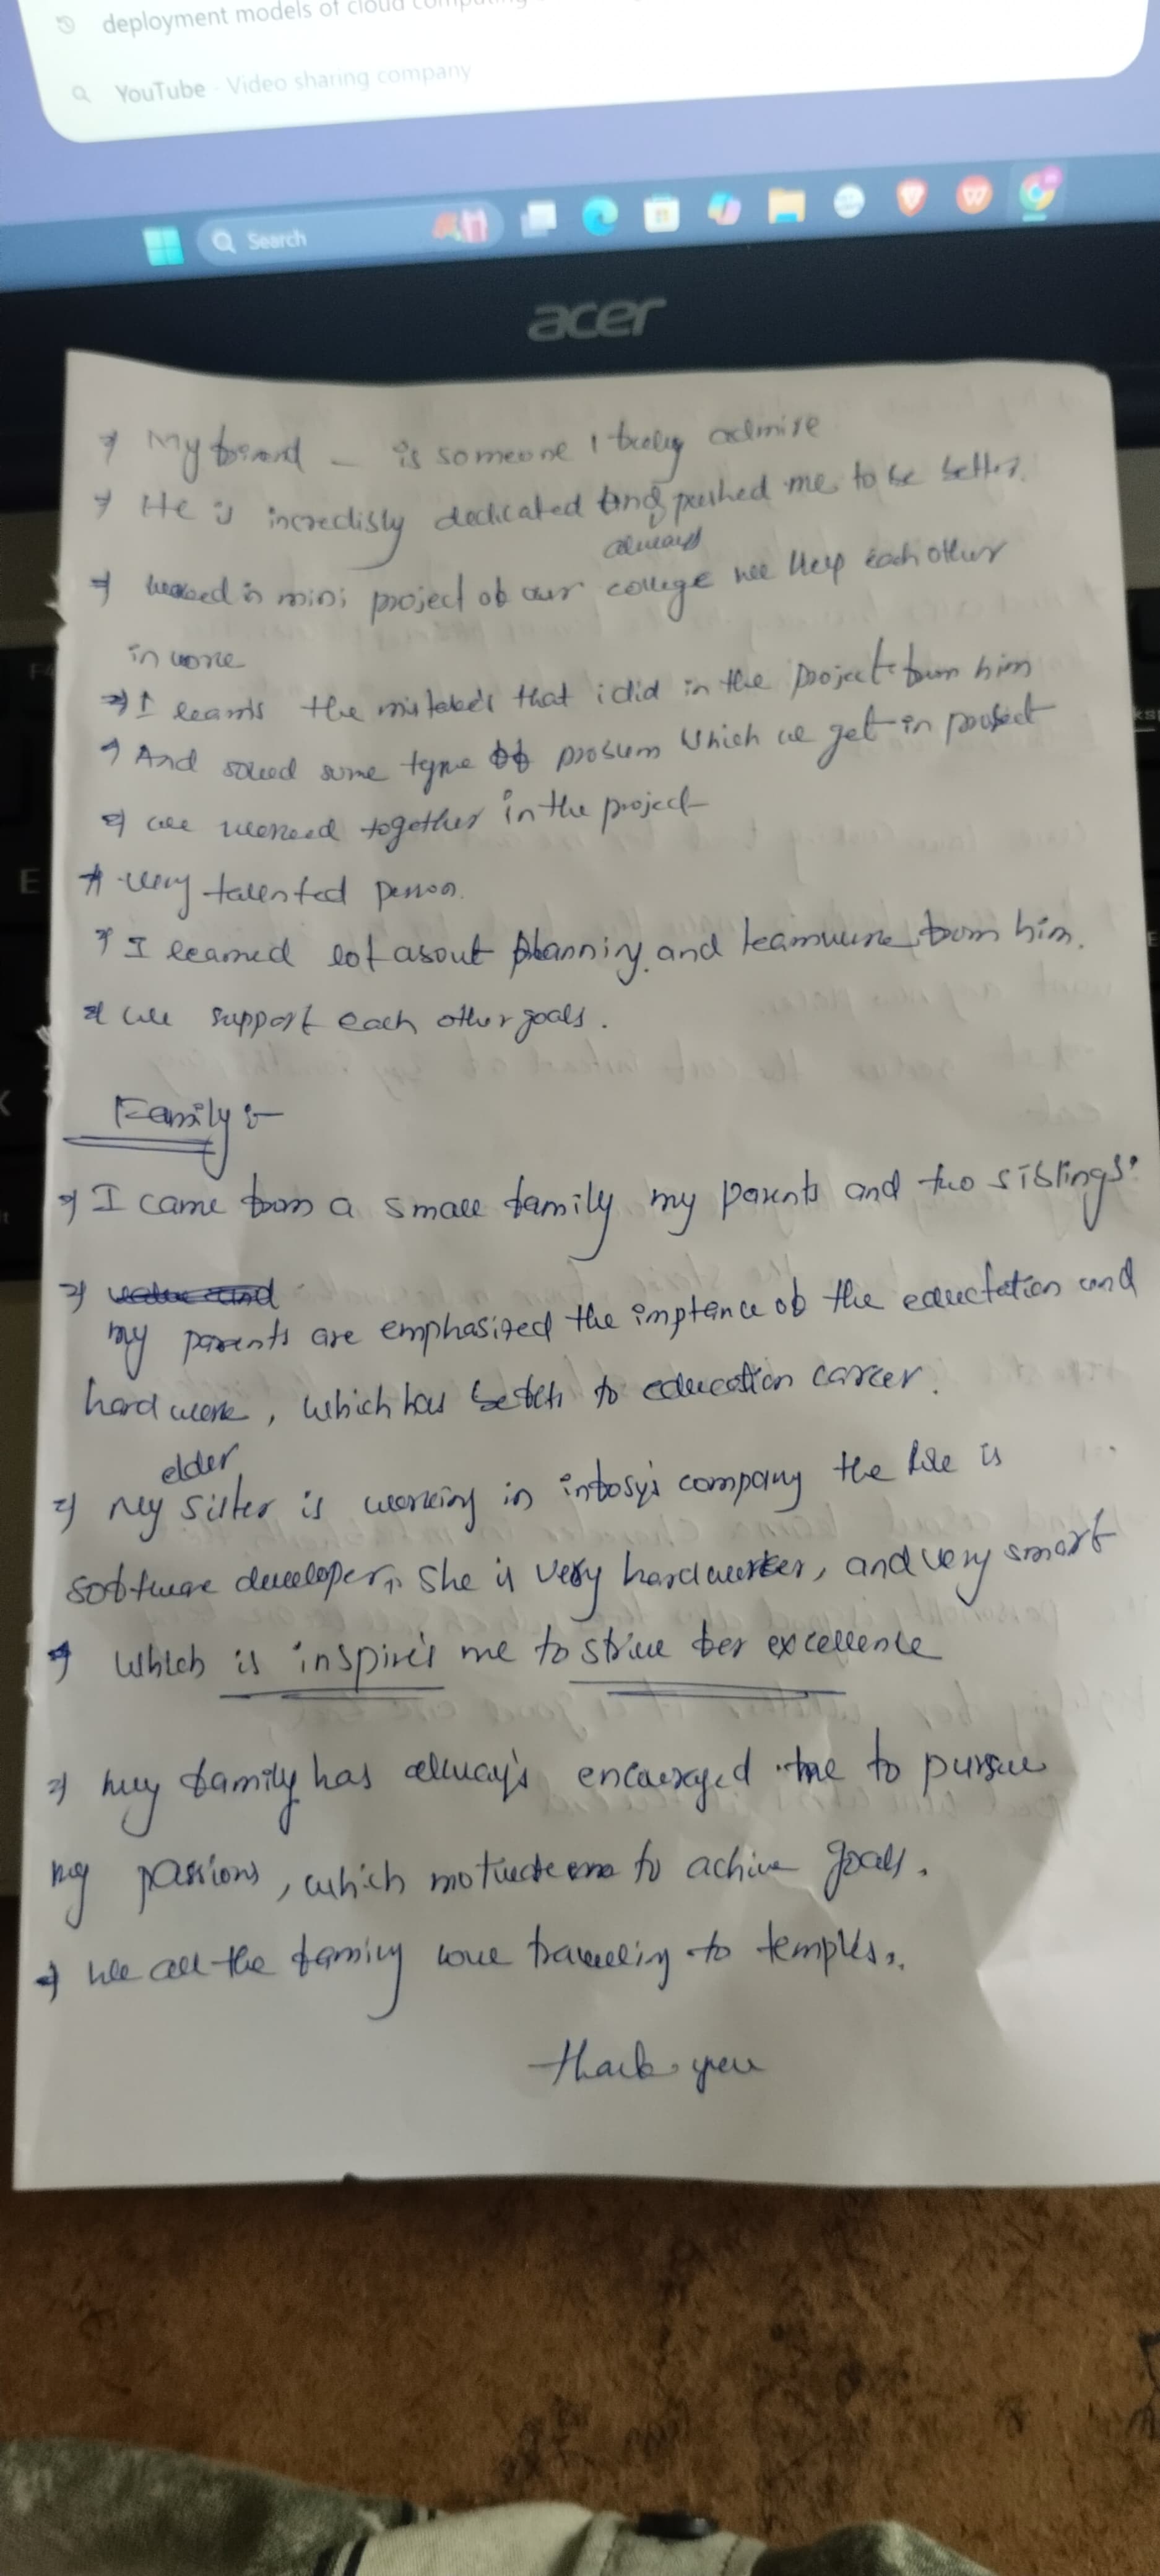 deployment models of cloud computing
YouTube - Video sharing company
Search
acer
→ My friend - is someone I truly admire
→ He is incredisly dedicated and pushed me to be better.
always
→ worked in mini project of our college we Help each other
in work
→ I learns the mistakes that i did in the project from him
→ And solved some type of problem Which we get in project
→ we worked together in the project
→ very talented person.
→ I learned lot about planning and teamwork from him.
→ we support each other goals.
Family :-
→ I came from a small family my parents and two siblings.
→ my parents are emphasized the imptence of the eductation and
hard work, which has to education career.
elder
→ My Sister is working in infosys company the is
software developer, She is very hard worker, and very smart
→ Which is inspires me to strive for excellence
→ my family has always encouraged me to pursue
my passions, which motivate me to achive goals.
→ We all the family love traveling to temples.
thank you